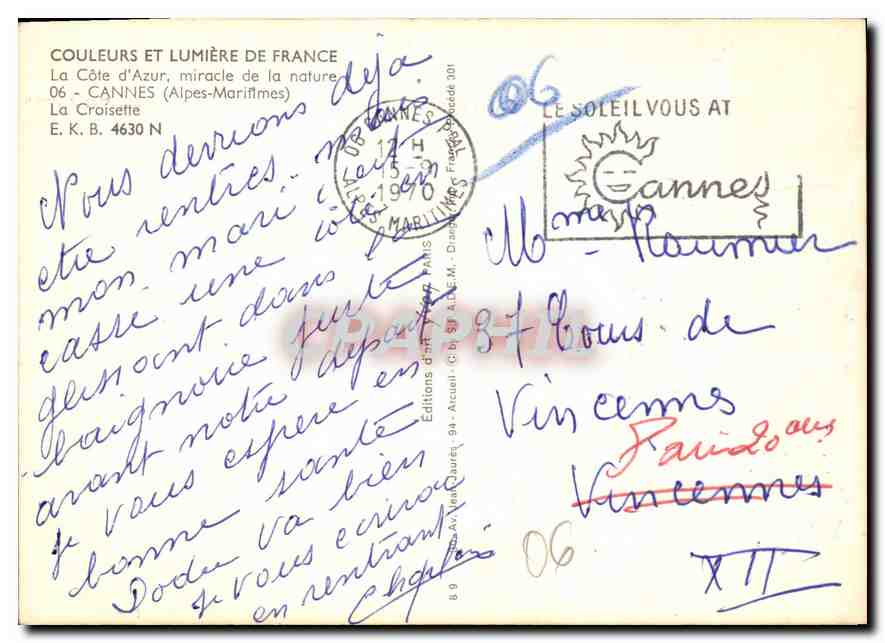 COULEURS ET LUMIÈRE DE FRANCE
La Côte d'Azur, miracle de la nature
06 - CANNES (Alpes-Maritimes)
La Croisette
E. K. B. 4630 N
Nous devrions déjà
etre rentrés mais
mon mari s'est
cassé une côte en
glissant dans la
baignoire juste
avant notre départ
je vous espère en
bonne santé
Dodu va bien
je vous écrirai
en rentrant
Editions d'art YVON PARIS
89 Av. Jean Jaurès - 94 - Arcueil - © by S.P.A.D.E.M. - Draeger Imp. - France procédé 301
06 CANNES P.PAL
17 H
15-9
1970
ALPES MARITIMES
06
LE SOLEIL VOUS AT
Cannes
Mme Roumier
37 Cours de
Vincennes
Paris 20 eme
Vincennes
XII
06
CPAPHIL